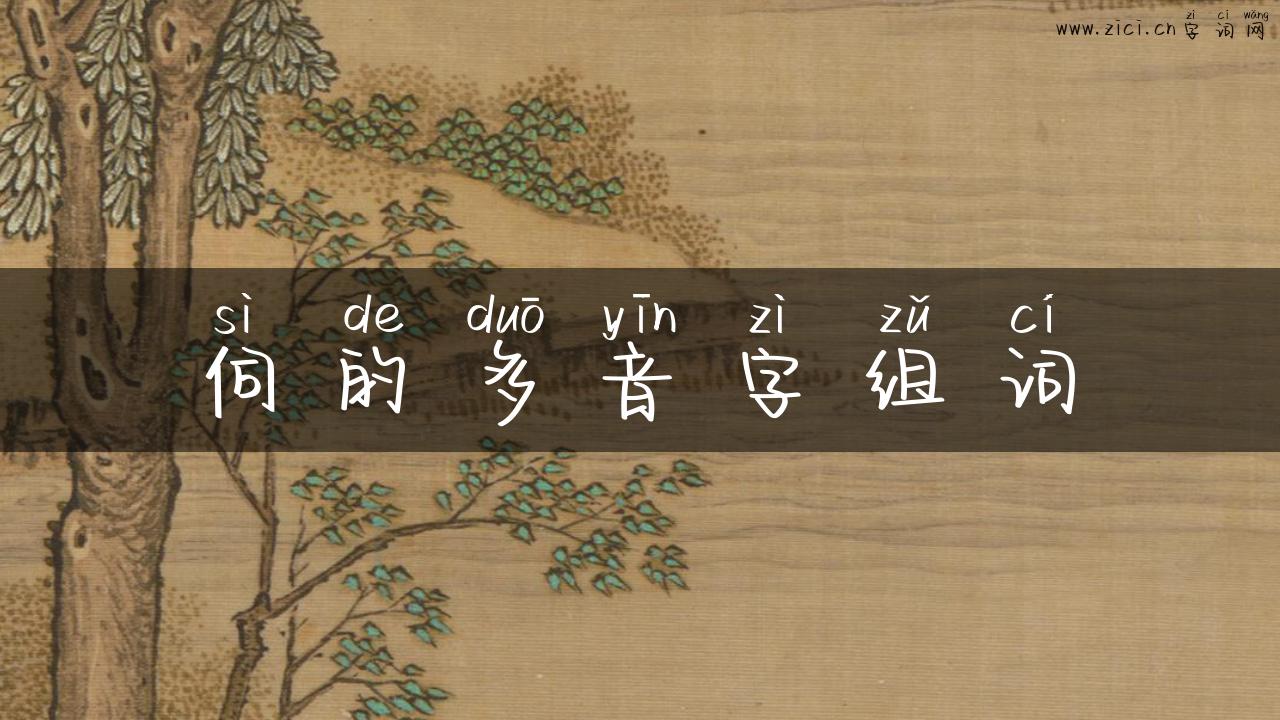 zì cí wǎng
www.zici.cn 字词网
sì de duō yīn zì zǔ cí
伺的多音字组词